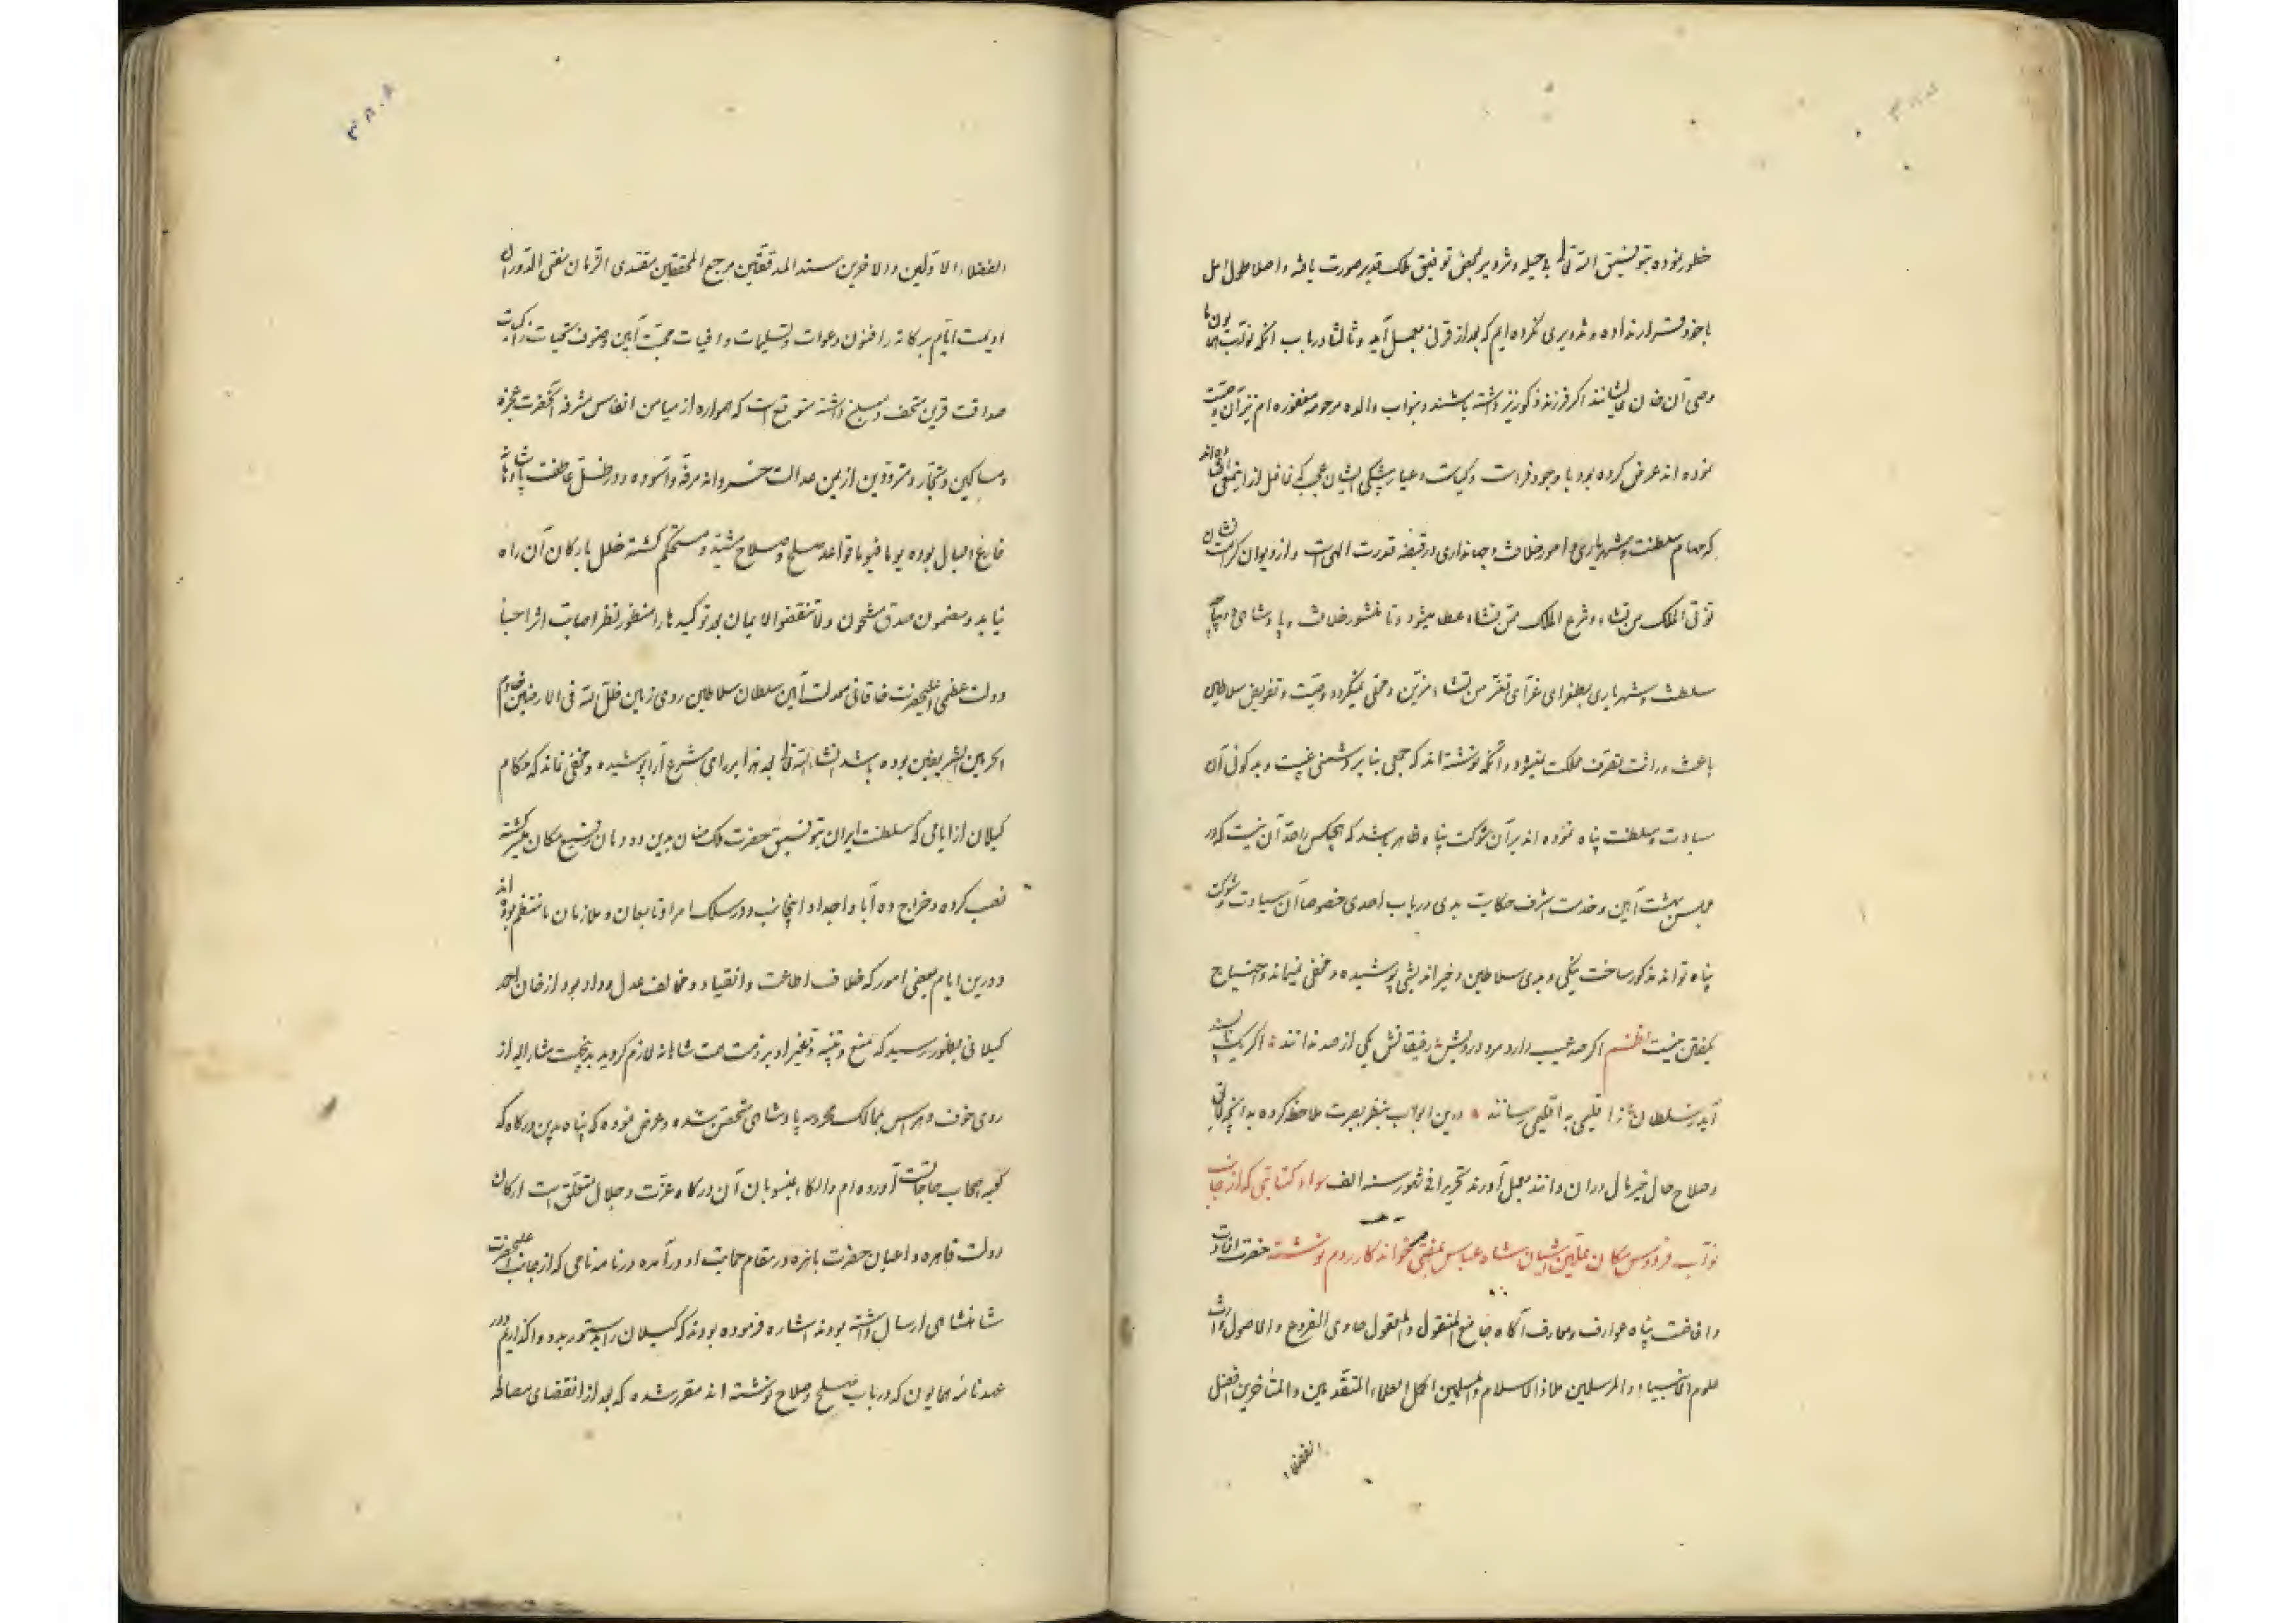 خطور نموده بتوفیق الله تعالی بی حیله و تزویر بمحض توفیق ملک قدیر صورت یافته و اصلا طول امل
با خود قرار نداده و تدبیری نکرده ایم که بعد از قرنی بعمل آید و ثالثا در باب آنکه نواب همایون ما
وصی آن خان عالیشانند اگر فرزند ذکور نیز داشته باشند و بنواب والده مرحومه مغفوره ام نیز آن وصیت
نموده اند عرض کرده بود با وجود فراست و کیاست و عیار پیشگی ایشان عجب که غافل از اینمعنی
که مهام سلطنت و شهریاری و امور خلافت و جهانداری در قبضه قدرت الهی است و از دیوان کرامت نشان
تؤتی الملک من تشاء و تنزع الملک ممن تشاء عطا میشود و تا منشور خلافت و پادشاهی و
سلطنت و شهریاری بطغرای غرای تعز من تشاء مزین و محلی نمیگردد وصیت و تفویض سلاطین
باعث وراثت تصرف مملکت نمیشود و آنکه نوشته اند که جمعی بنا بر دشمنی غیبت و بد گوئی آن
سیادت و سلطنت پناه نموده اند بر آن شوکت پناه ظاهر باشد که هیچکس را حد آن نیست که در
مجلس بهشت آیین و خدمت اشرف حکایت بدی در باب احدی خصوصا آن سیادت و شوکت
پناه تواند مذکور ساخت نیکی و بدی سلاطین و خیر اندیشی پوشیده و مخفی نمیماند و احتیاج
بگفتن نیست نظم اگر صد عیب دارد مرد درویش رفیقانش یکی از صد ندانند اگر یک ناپسند
آید ز سلطان ز اقلیمی به اقلیمی رسانند درین ابواب بنظر بصیرت ملاحظه کرده به آنچه
و صلاح حال خیر مآل در آن دانند بعمل آورند تحریرا فی شهور سنه الف سواد کتابتی که از جانب
نواب فردوس مکان علیین آشیان شاه عباس بمفتی خواندکار روم نوشته حضرت افادت
و افاضت پناه عوارف و معارف آگاه جامع المنقول و المعقول حاوی الفروع و الاصول وارث
علوم الانبیاء و المرسلین ملاذ الاسلام و المسلمین اکمل العلماء المتقدمین و المتأخرین افضل
الفضلاء
الفضلاء الاولین و الاخرین سند المدققین مرجع المحققین مقتدی الزمان مفتی الدوران
ادیمت ایام برکاته را فنون دعوات و تسلیمات وافیات محبت آیین و صنوف تحیات زاکیات
صداقت قرین متحف و مبلغ داشته متوقع است که همواره از میامن انفاس مشرفه آنحضرت عجزه
و مساکین و تجار و مترددین از یمن عدالت خسروانه مرفه و آسوده و در ظل عاطفت پادشاهانه
فارغ البال بوده یوما فیوما قواعد صلح و صلاح مشید و مستحکم گشته خلل بارکان آن راه
نیابد و مضمون صدق مشحون و لا تنقضوا الایمان بعد توکیدها را منظور نظر اصابت اثر
دولت عظمی اعلیحضرت خاقانی معدلت آیین سلطان سلاطین روی زمین ظل الله فی الارضین خادم
الحرمین الشریفین بوده باشد انشاء الله تعالی بعد هذا بر رای شرع آرا پوشیده و مخفی نماند که حکام
گیلان از ایامی که سلطنت ایران بتوفیق حضرت ملک منان بدین دودمان رفیع مکان مقرر گشته
نصب کرده و خراج ده آبا و اجداد اینجانب و در سلک امرا و تابعان و ملازمان ما منتظم بوده اند
و درین ایام بعضی امور که خلاف اطاعت و انقیاد و مخالف عدل و داد بود از خان احمد
گیلانی بظهور رسید که منع و تنبیه و تغیر او بر ذمت همت شاهانه لازم گردید بدینجهت مشار الیه از
روی خوف و هراس بممالک محروسه پادشاهی متحصن شده و عرض نموده که پناه بدین درگاه که
کعبه اصحاب حاجاتست آورده ام و الکاء بمنسوبان آن درگاه عزت و جلال متعلق است ارکان
دولت قاهره و اعیان حضرت باهره در مقام حمایت او در آمده در نامه نامی که از جانب اعلیحضرت
شاهنشاهی ارسال داشته بودند اشاره فرموده بودند که گیلان را بدستور بدو واگذاریم و در
عهدنامه همایون که در باب صلح و صلاح نوشته اند مقرر شده که بعد از انقضای مصالحه